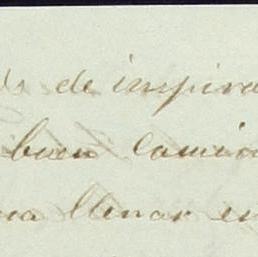 de inspira
buen camin
llenar es